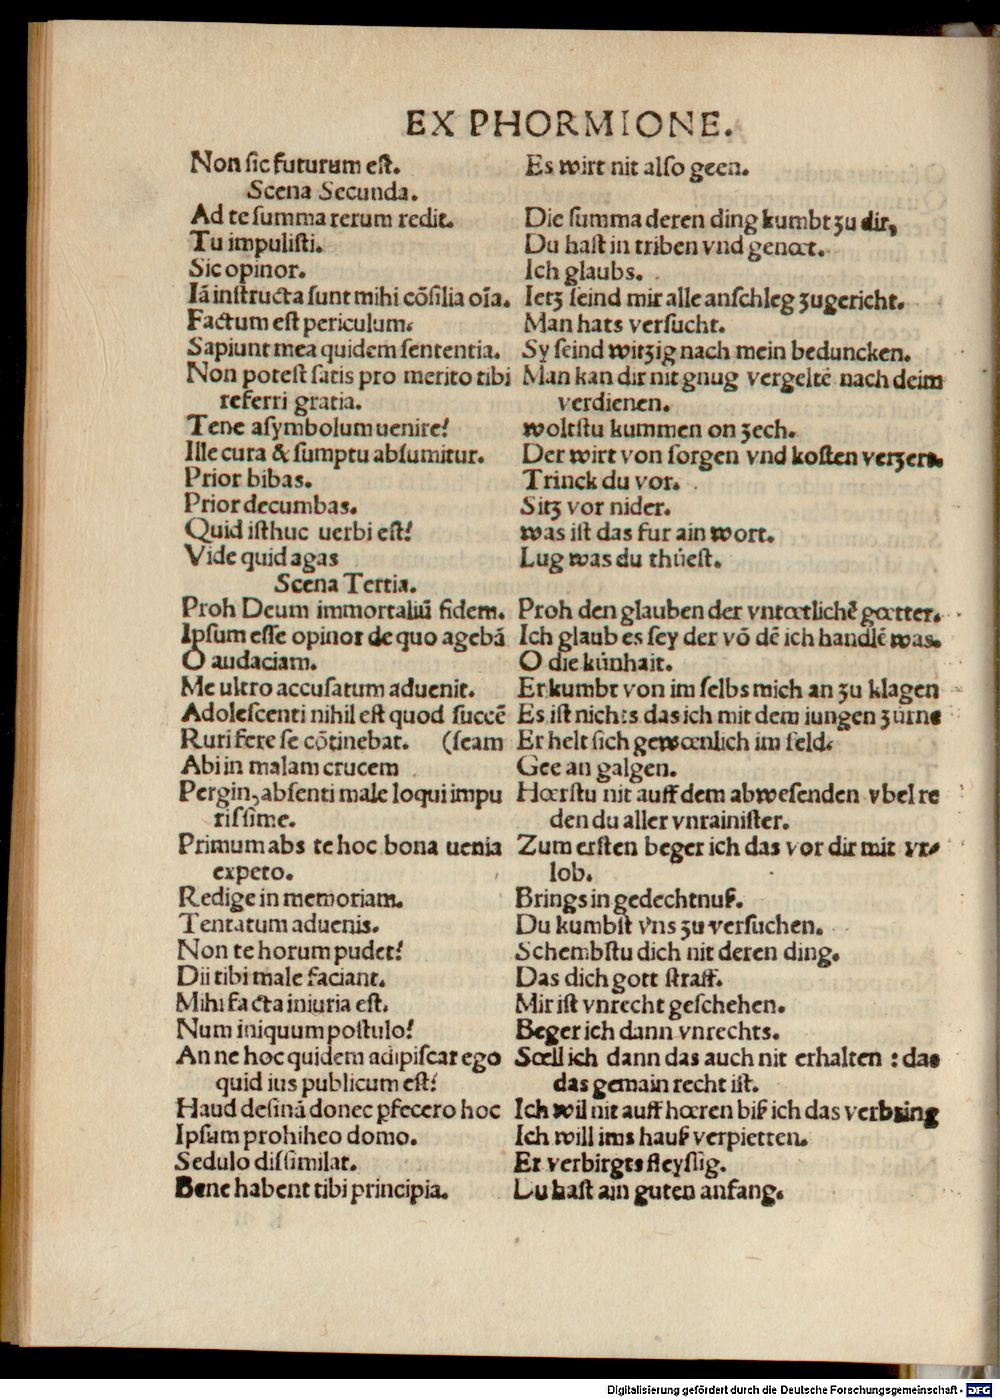 EX PHORMIONE.
Non sic futurum est. Es wirt nit also geen.
Scena Secunda.
Ad te summa rerum redit. Die summa deren ding kumbt zu dir,
Tu impulisti. Du hast in triben vnd genœt.
Sic opinor. Ich glaubs.
Iã instructa sunt mihi cõsilia oĩa. Ietz seind mir alle anschleg zugericht.
Factum est periculum. Man hats versucht.
Sapiunt mea quidem sententia. Sy seind witzig nach mein beduncken.
Non potest satis pro merito tibi Man kan dir nit gnug vergeltẽ nach deim
referri gratia. verdienen.
Tene asymbolum uenire? woltstu kummen on zech.
Ille cura & sumptu absumitur. Der wirt von sorgen vnd kosten verzern.
Prior bibas. Trinck du vor.
Prior decumbas. Sitz vor nider.
Quid isthuc uerbi est? was ist das fur ain wort.
Vide quid agas Lug was du thuͤest.
Scena Tertia.
Proh Deum immortaliũ fidem. Proh den glauben der vntœtlichẽ gœtter.
Ipsum esse opinor de quo agebã Ich glaub es sey der võ dẽ ich handlẽ was.
O audaciam. O die kuͤnhait.
Me ultro accusatum aduenit. Er kumbt von im selbs mich an zu klagen
Adolescenti nihil est quod succẽ Es ist nichts das ich mit dem iungen zurne
Ruri fere se cõtinebat. (seam Er helt sich gewœnlich im feld.
Abi in malam crucem Gee an galgen.
Pergin, absenti male loqui impu Hœrstu nit auff dem abwesenden vbel re
rissime. den du aller vnrainister.
Primum abs te hoc bona uenia Zum ersten beger ich das vor dir mit vr-
expeto. lob.
Redige in memoriam. Brings in gedechtnuß.
Tentatum aduenis. Du kumbst vns zu versuchen.
Non te horum pudet? Schembstu dich nit deren ding.
Dii tibi male faciant. Das dich gott straff.
Mihi facta iniuria est. Mir ist vnrecht geschehen.
Num iniquum postulo? Beger ich dann vnrechts.
An ne hoc quidem adipiscar ego Sœll ich dann das auch nit erhalten : das
quid ius publicum est? das gemain recht ist.
Haud desinã donec ꝑfecero hoc Ich wil nit auff hœren biß ich das verbring
Ipsum prohibeo domo. Ich will ims hauß verpietten.
Sedulo dissimilat. Er verbirgts fleyssig.
Bene habent tibi principia. Du hast ain guten anfang.
Digitalisierung gefördert durch die Deutsche Forschungsgemeinschaft - DFG